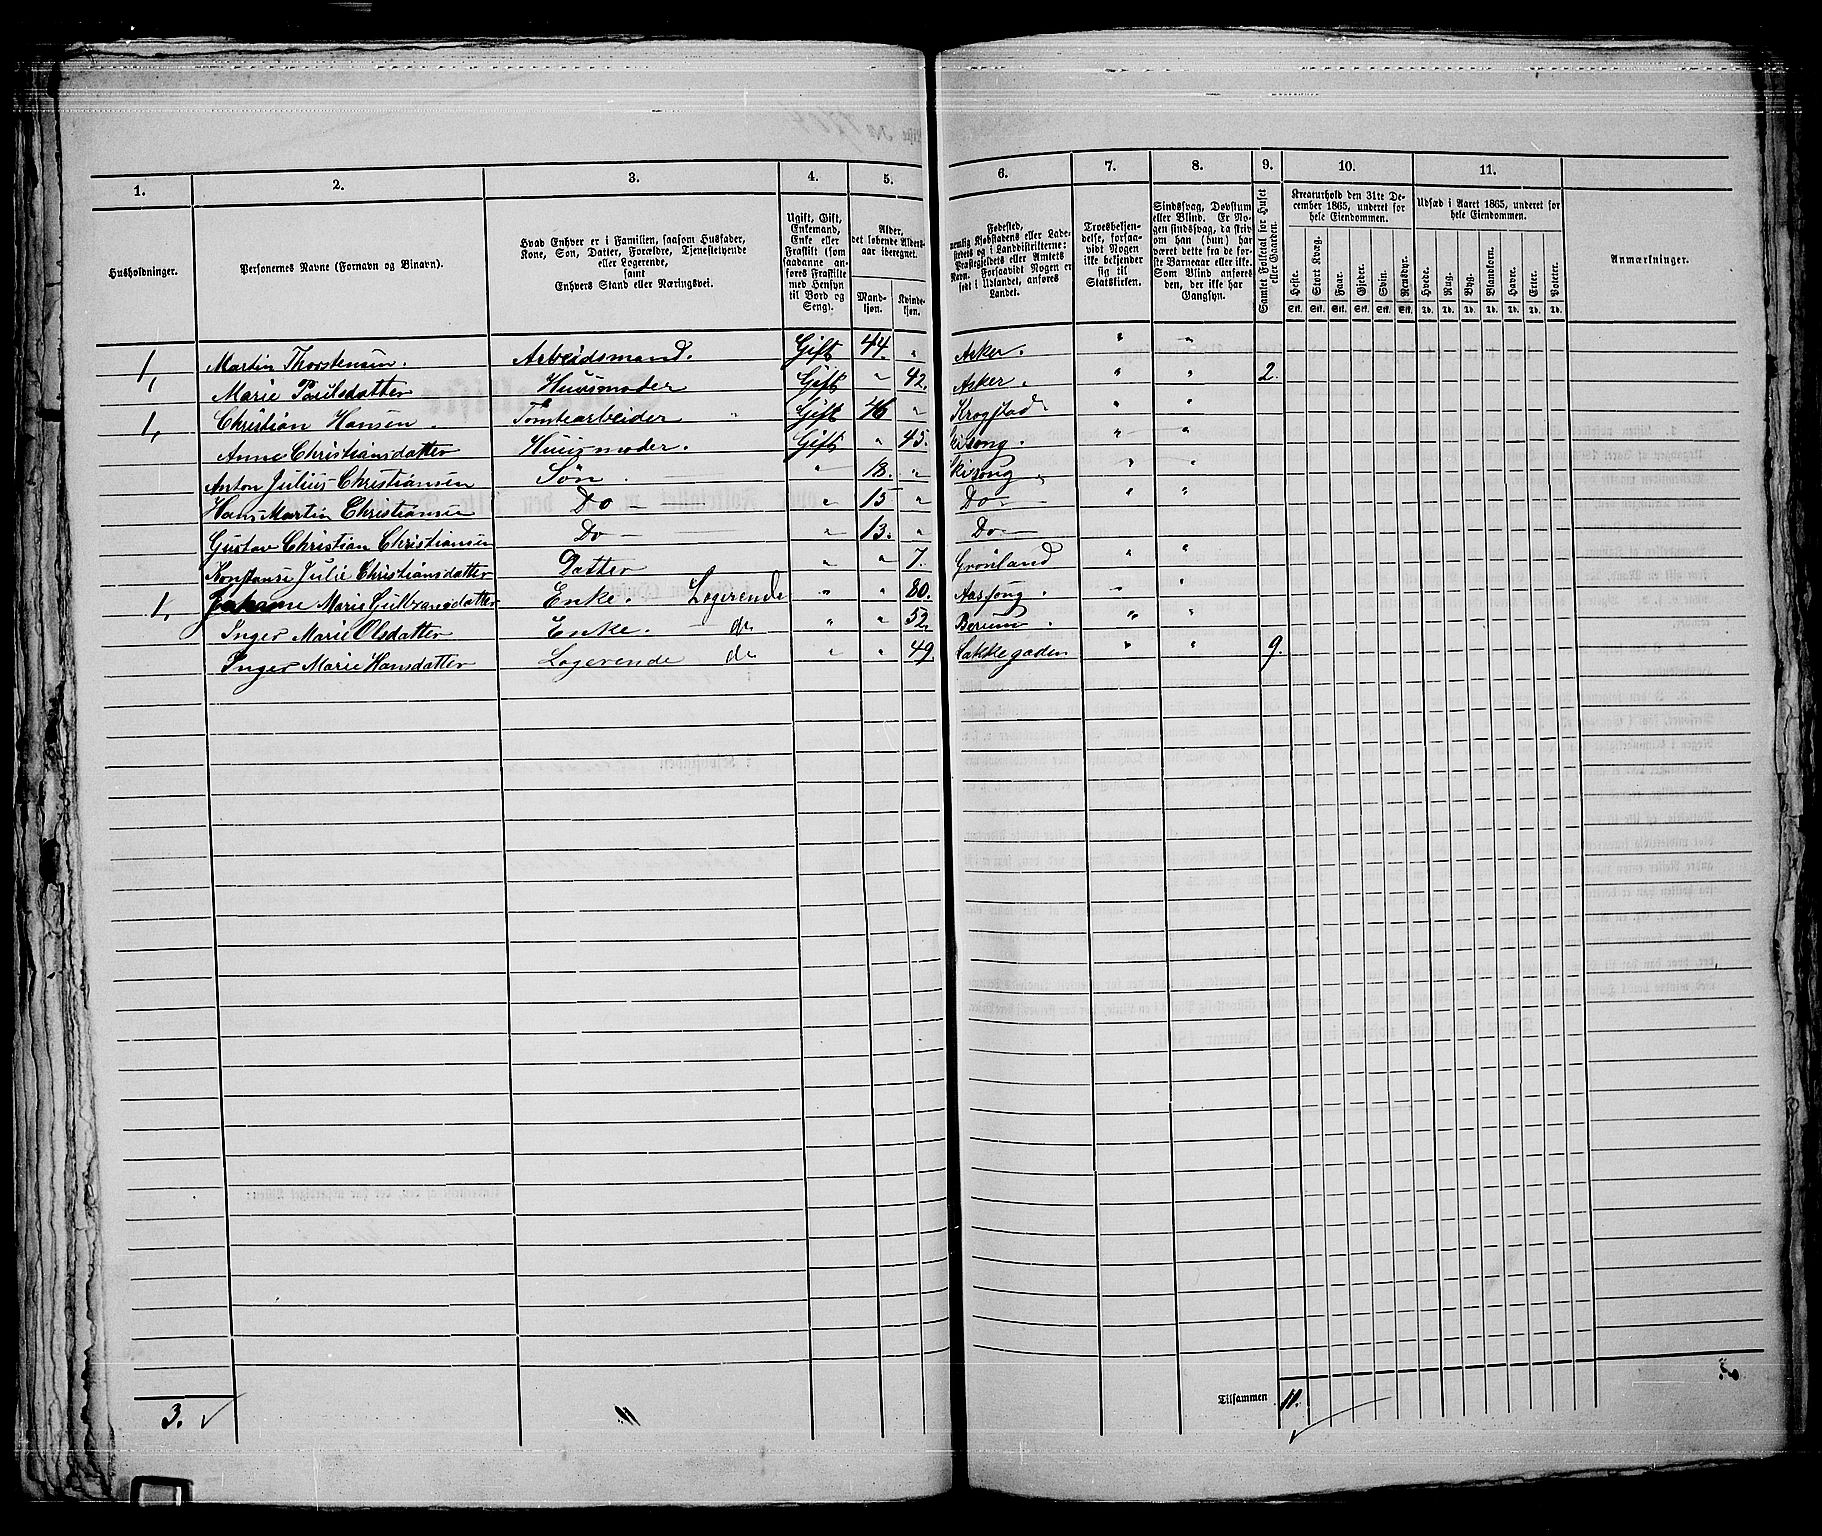 1. 2. 3. 4. 5. 6. 7. 8. 9. 10. 11.
Husholdninger.
Personernes Navne (Fornavn og Binavn).
Hvad Enhver er i Familien, saasom Husfader,
Kone, Søn, Datter, Forældre, Tjenestetyende
eller Logerende,
samt
Enhvers Stand eller Næringsvei.
Ugift, Gift,
Enkemand,
Enke eller
Fraskilt (som
saadanne an-
føres Fraskilte
med Hensyn
til Bord og
Seng).
Alder,
det løbende Alders-
aar iberegnet.
Mand-
kjøn.
Kvinde-
kjøn.
Fødested,
nemlig Kjøbstadens eller Lade-
stedets og i Landdistrikterne:
Præstegjeldets eller Amtets
Navn. Forsaavidt Nogen er
født i Udlandet, anføres
Landet.
Troesbekjen-
delse, forsaa-
vidt Nogen
ikke bekjender
sig til
Statskirken.
Sindssvag, Døvstum
eller Blind. Er No-
gen sindssvag, da skriv
om han (hun) har
været dette fra de før-
ste Barneaar eller ikke.
Som Blind anføres
den, der ikke har
Gangsyn.
Samlet Folketal for Huset
eller Gaarden.
Kreaturhold den 31te De-
cember 1865, underet for
hele Eiendommen.
Heste. Stort Kvæg. Faar. Gjeder. Svin. Rensdyr.
Stk. Stk. Stk. Stk. Stk. Stk.
Udsæd i Aaret 1865, underet for
hele Eiendommen.
Hvede. Rug. Byg. Blandkorn. Havre. Erter. Poteter.
Td. Td. Td. Td. Td. Td. Td.
Anmærkninger.
1, Martin Thorstensen. Arbeidsmand. Gift 44. " Asker. " "
Marie Paulsdatter Huusmoder Gift " 42. Asker. " " 2.
1, Christian Hansen. Tomtearbeider " Gift 46 " Krogstad " "
Anne Christiansdatter Huusmoder. Gift " 45. " "
Anton Julius Christiansen Søn. " 18. " " "
Hans Martin Christiansen Do " 15 " Do " "
Gustav Christian Christiansen Do " 13. " Do
Konstanse Julie Christiansdatter Datter " " 7. Grønland " "
1, Johanne Marie Gulbransdatter Enke. Logerende " " 80. " "
Inger Marie Olsdatter Enke. do " " 52. Berum. " "
Inger Marie Hansdatter Logerende do " " 49. Lakkegaden " " 9.
3. 11 Tilsammen 11.